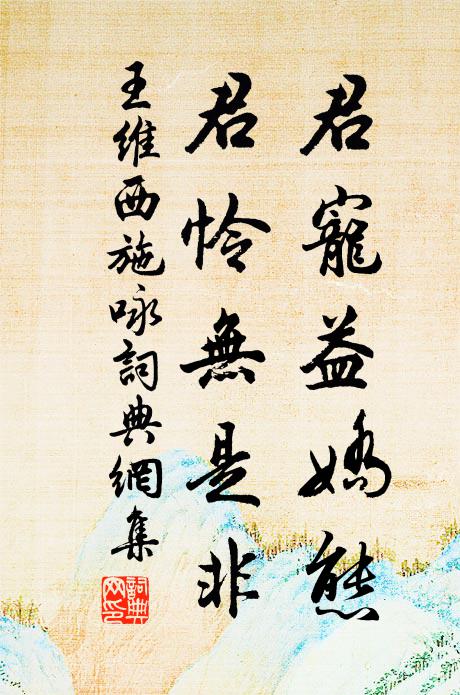 君寵益嬌態
君怜無是非
王維西施咏詞典網集
詞典